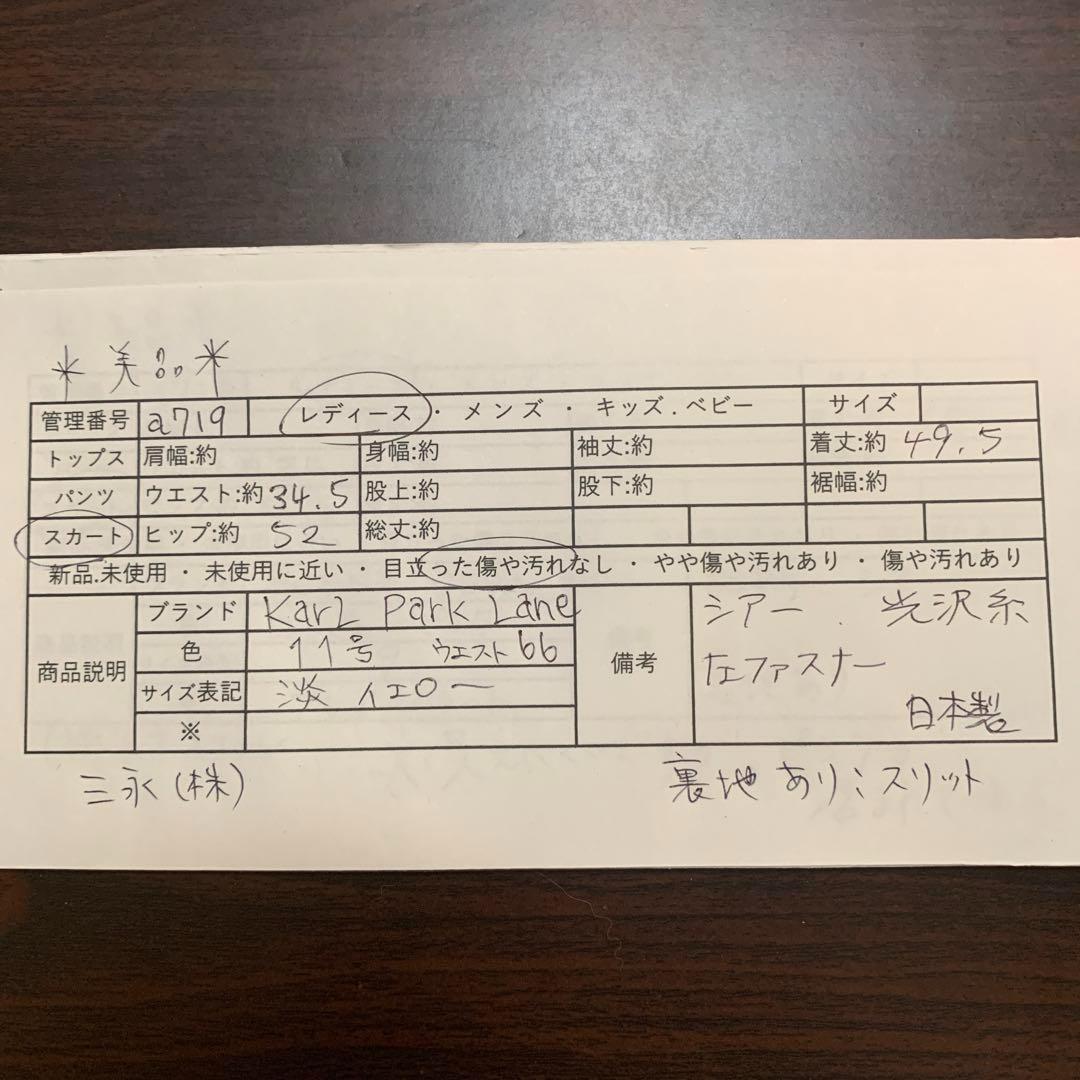 ＊美品＊
管理番号 a719 レディース・メンズ・キッズ.ベビー サイズ
トップス 肩幅:約 身幅:約 袖丈:約 着丈:約 49.5
パンツ ウエスト:約 34.5 股上:約 股下:約 裾幅:約
スカート ヒップ:約 52 総丈:約
新品.未使用・未使用に近い・目立った傷や汚れなし・やや傷や汚れあり・傷や汚れあり
商品説明 ブランド KarL Park Lane 備考 シアー . 光沢糸
色 11号 ウエスト66 左ファスナー
サイズ表記 淡イエロー 日本製
※
三永(株) 裏地あり:スリット